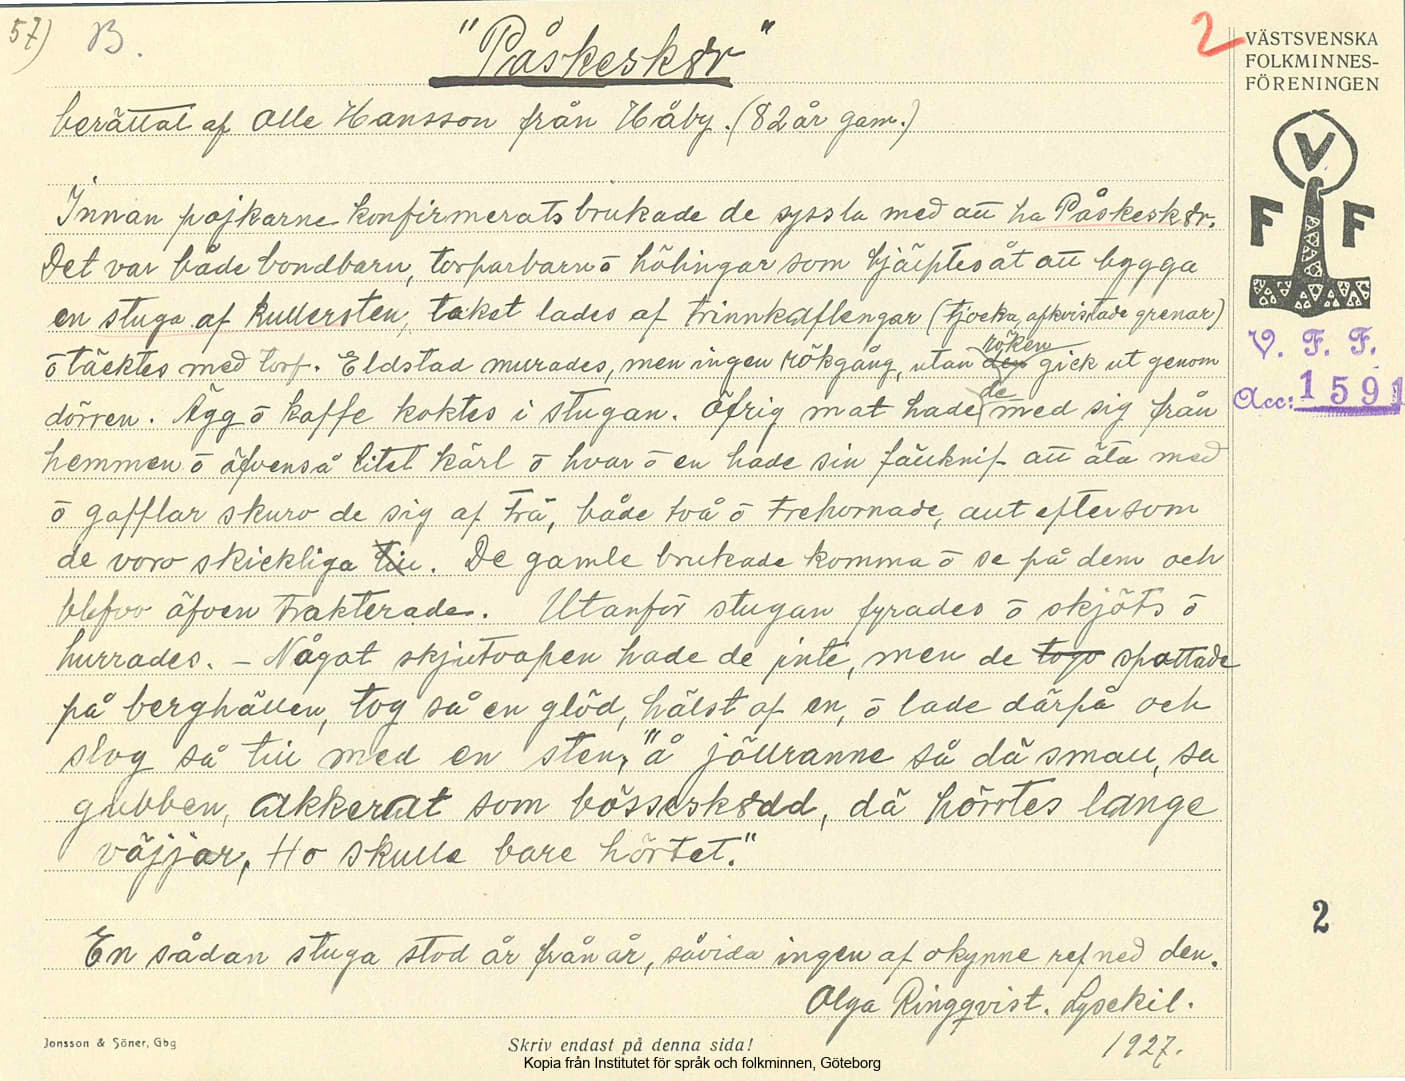 57) B.
"Påskeskør"
2
VÄSTSVENSKA
FOLKMINNES-
FÖRENINGEN
V
F F
V. F. F.
Acc: 1591
berättat af Olle Hansson från Håby. (82 år gam.)
Innan pojkarne konfirmerats brukade de syssla med att ha Påskeskør.
Det var både bondbarn, torparbarn ō hölingar som hjälptes åt att bygga
en stuga af kullersten, taket lades af trinnkaflengar (tjocka, afkvistade grenar)
ō täcktes med torf. Eldstad murades, men ingen rökgång, utan den röken gick ut genom
dörren. Ägg ō kaffe koktes i stugan. Öfrig mat hade de med sig från
hemmen ō äfvenså litet kärl ō hvar ō en hade sin fällknif att äta med
ō gafflar skuro de sig af trä, både två ō trehornade, allt eftersom
de voro skickliga till. De gamle brukade komma ō se på dem och
blefvo äfven trakterade. Utanför stugan fyrades ō skjöts ō
hurrades. – Något skjutvapen hade de inte, men de togo spottade
på berghällen, tog så en glöd, hälst af en, ō lade därpå och
slog så till med en sten, "å jöllranne så dä small, sa
gubben, akkerat som bösseskødd, dä hörrtes lange
väjjar, Ho skulle bare hörtet."
En sådan stuga stod år från år, såvida ingen af okynne ref ned den.
Olga Ringqvist. Lysekil.
1927.
2
Jonsson & Söner, Gbg
Skriv endast på denna sida!
Kopia från Institutet för språk och folkminnen, Göteborg